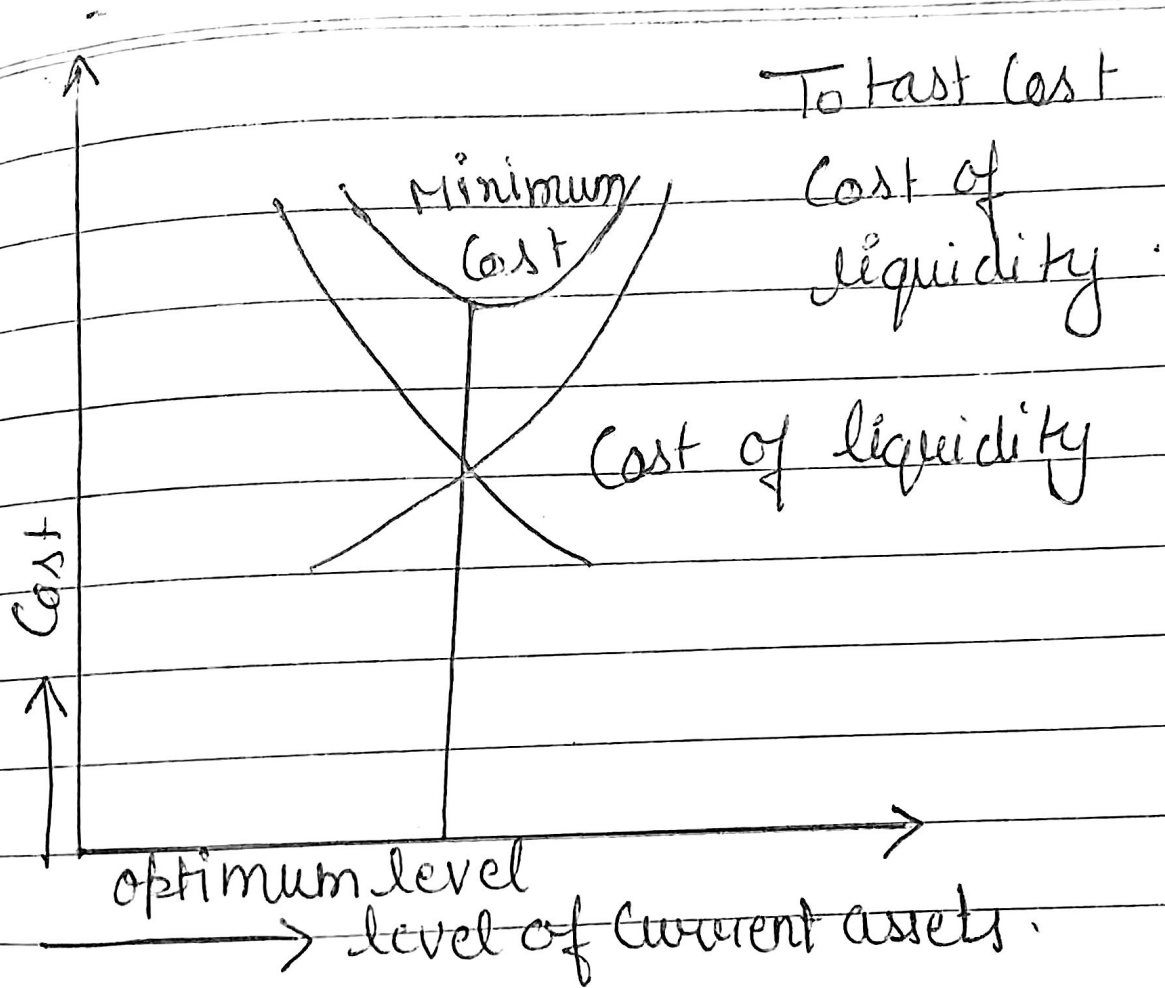 Totast Cost
Minimum
Cost
Cost of
liquidity
Cost of liquidity
Cost
optimum level
level of Current assets.